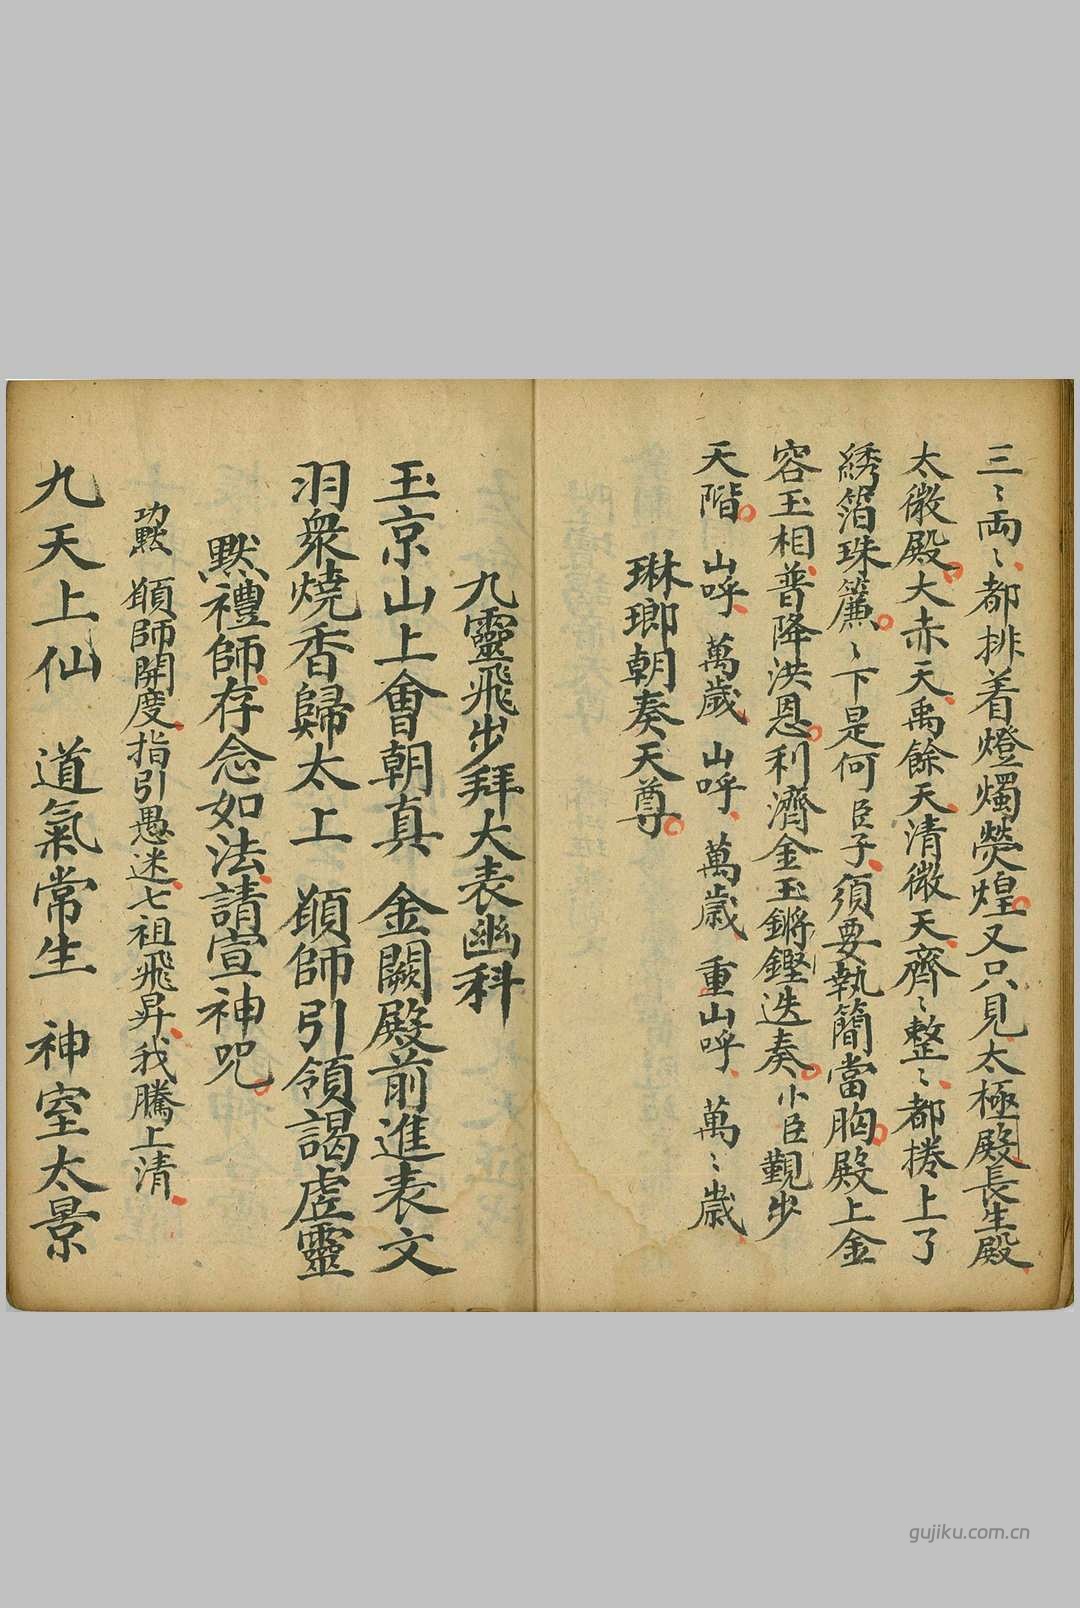 三〻両〻都排着燈燭熒煌又只見太極殿長生殿
太微殿大赤天禹餘天清微天齊〻整〻都捲上了
綉箔珠簾〻下是何臣子須要執簡當胸殿上金
容玉相普降洪恩利濟金玉鏘鏗迭奏小臣覲步
天階 山呼 萬歲 山呼 萬歲 重山呼 萬〻歲
琳瑯朝奏天尊
九靈飛步拜大表幽科
玉京山上會朝真 金闕殿前進表文
羽衆燒香歸太上 願師引領謁虛靈
默禮師存念如法請宣神咒
功默 願師開度指引愚迷七祖飛昇我騰上清
九天上仙 道氣常生 神室太景
gujiku.com.cn